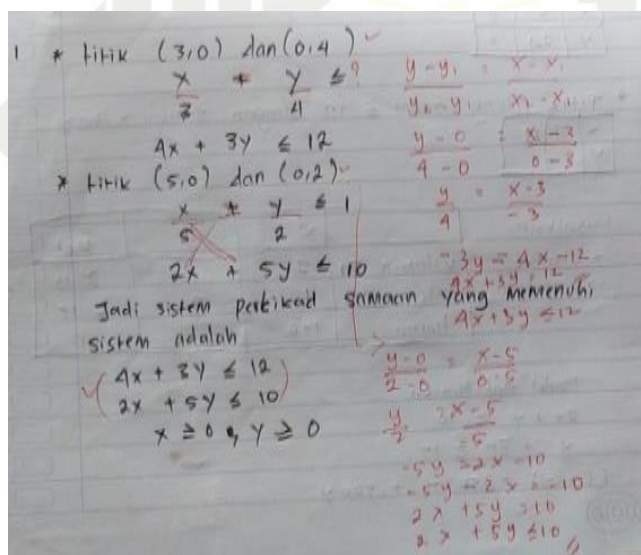 1 * titik (3,0) dan (0,4)
x/3 + y/4 ≤ ?
4x + 3y ≤ 12
* titik (5,0) dan (0,2)
x/5 + y/2 ≤ 1
2x + 5y ≤ 10
Jadi sistem samaan yang memenuhi
sistem adalah
4x + 3y ≤ 12
2x + 5y ≤ 10
x ≥ 0, y ≥ 0
y-y₁ / y₂-y₁ = x-x₁ / x₂-x₁
y-0 / 4-0 = x-3 / 0-3
y / 4 = x-3 / -3
-3y = 4x-12
4x+3y=12
4x+3y ≤12
y-0 / 2-0 = x-5 / 0-5
y / 2 = x-5 / -5
-5y = 2x-10
2x +5y =10
2x +5y ≤10